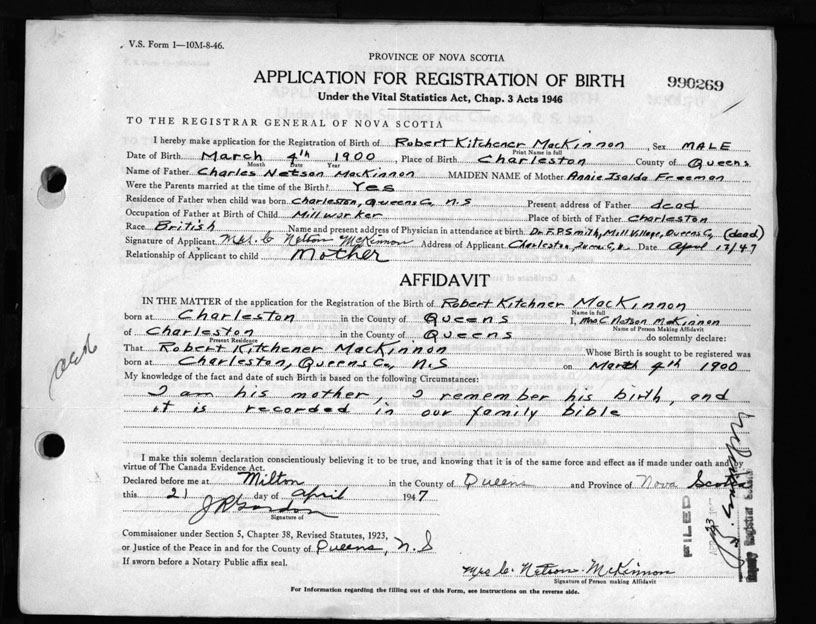 V.S. Form 1—10M-8-46.
PROVINCE OF NOVA SCOTIA
APPLICATION FOR REGISTRATION OF BIRTH
990269
Under the Vital Statistics Act, Chap. 3 Acts 1946
TO THE REGISTRAR GENERAL OF NOVA SCOTIA
I hereby make application for the Registration of Birth of Robert Kitchener MacKinnon, Sex MALE
Print Name in full
Date of Birth March 4th 1900, Place of Birth Charleston County of Queens
Month Date Year
Name of Father Charles Netson MacKinnon MAIDEN NAME of Mother Annie Isalda Freeman
Were the Parents married at the time of the Birth? Yes
Residence of Father when child was born Charleston, Queens Co, N.S Present address of Father dead
Occupation of Father at Birth of Child Millworker Place of birth of Father Charleston
Race British Name and present address of Physician in attendance at birth. Dr. F.P. Smith, Mill Village, Queens Co, (dead)
Signature of Applicant Mrs. C Netson McKinnon Address of Applicant Charleston, Date April 47
Relationship of Applicant to child Mother
AFFIDAVIT
IN THE MATTER of the application for the Registration of the Birth of Robert Kitchner MacKinnon
Name in full
born at Charleston in the County of Queens I, Mrs C Netson McKinnon
Name of Person Making Affidavit
of Charleston in the County of Queens do solemnly declare:
Present Residence
That Robert Kitchener MacKinnon Whose Birth is sought to be registered was
born at Charleston, Queens Co, N.S on March 4th 1900
My knowledge of the fact and date of such Birth is based on the following Circumstances:
I am his mother, I remember his birth, and
it is recorded in our family bible
I make this solemn declaration conscientiously believing it to be true, and knowing that it is of the same force and effect as if made under oath and by
virtue of The Canada Evidence Act.
Declared before me at Milton in the County of Queens and Province of Nova Scotia
this 21 day of April 1947
Signature of
Commissioner under Section 5, Chapter 38, Revised Statutes, 1923,
or Justice of the Peace in and for the County of Queens, N.S
If sworn before a Notary Public affix seal.
Mrs C. Netson McKinnon
Signature of Person making Affidavit
For Information regarding the filling out of this Form, see instructions on the reverse side.
FILED
Deputy Registrar General